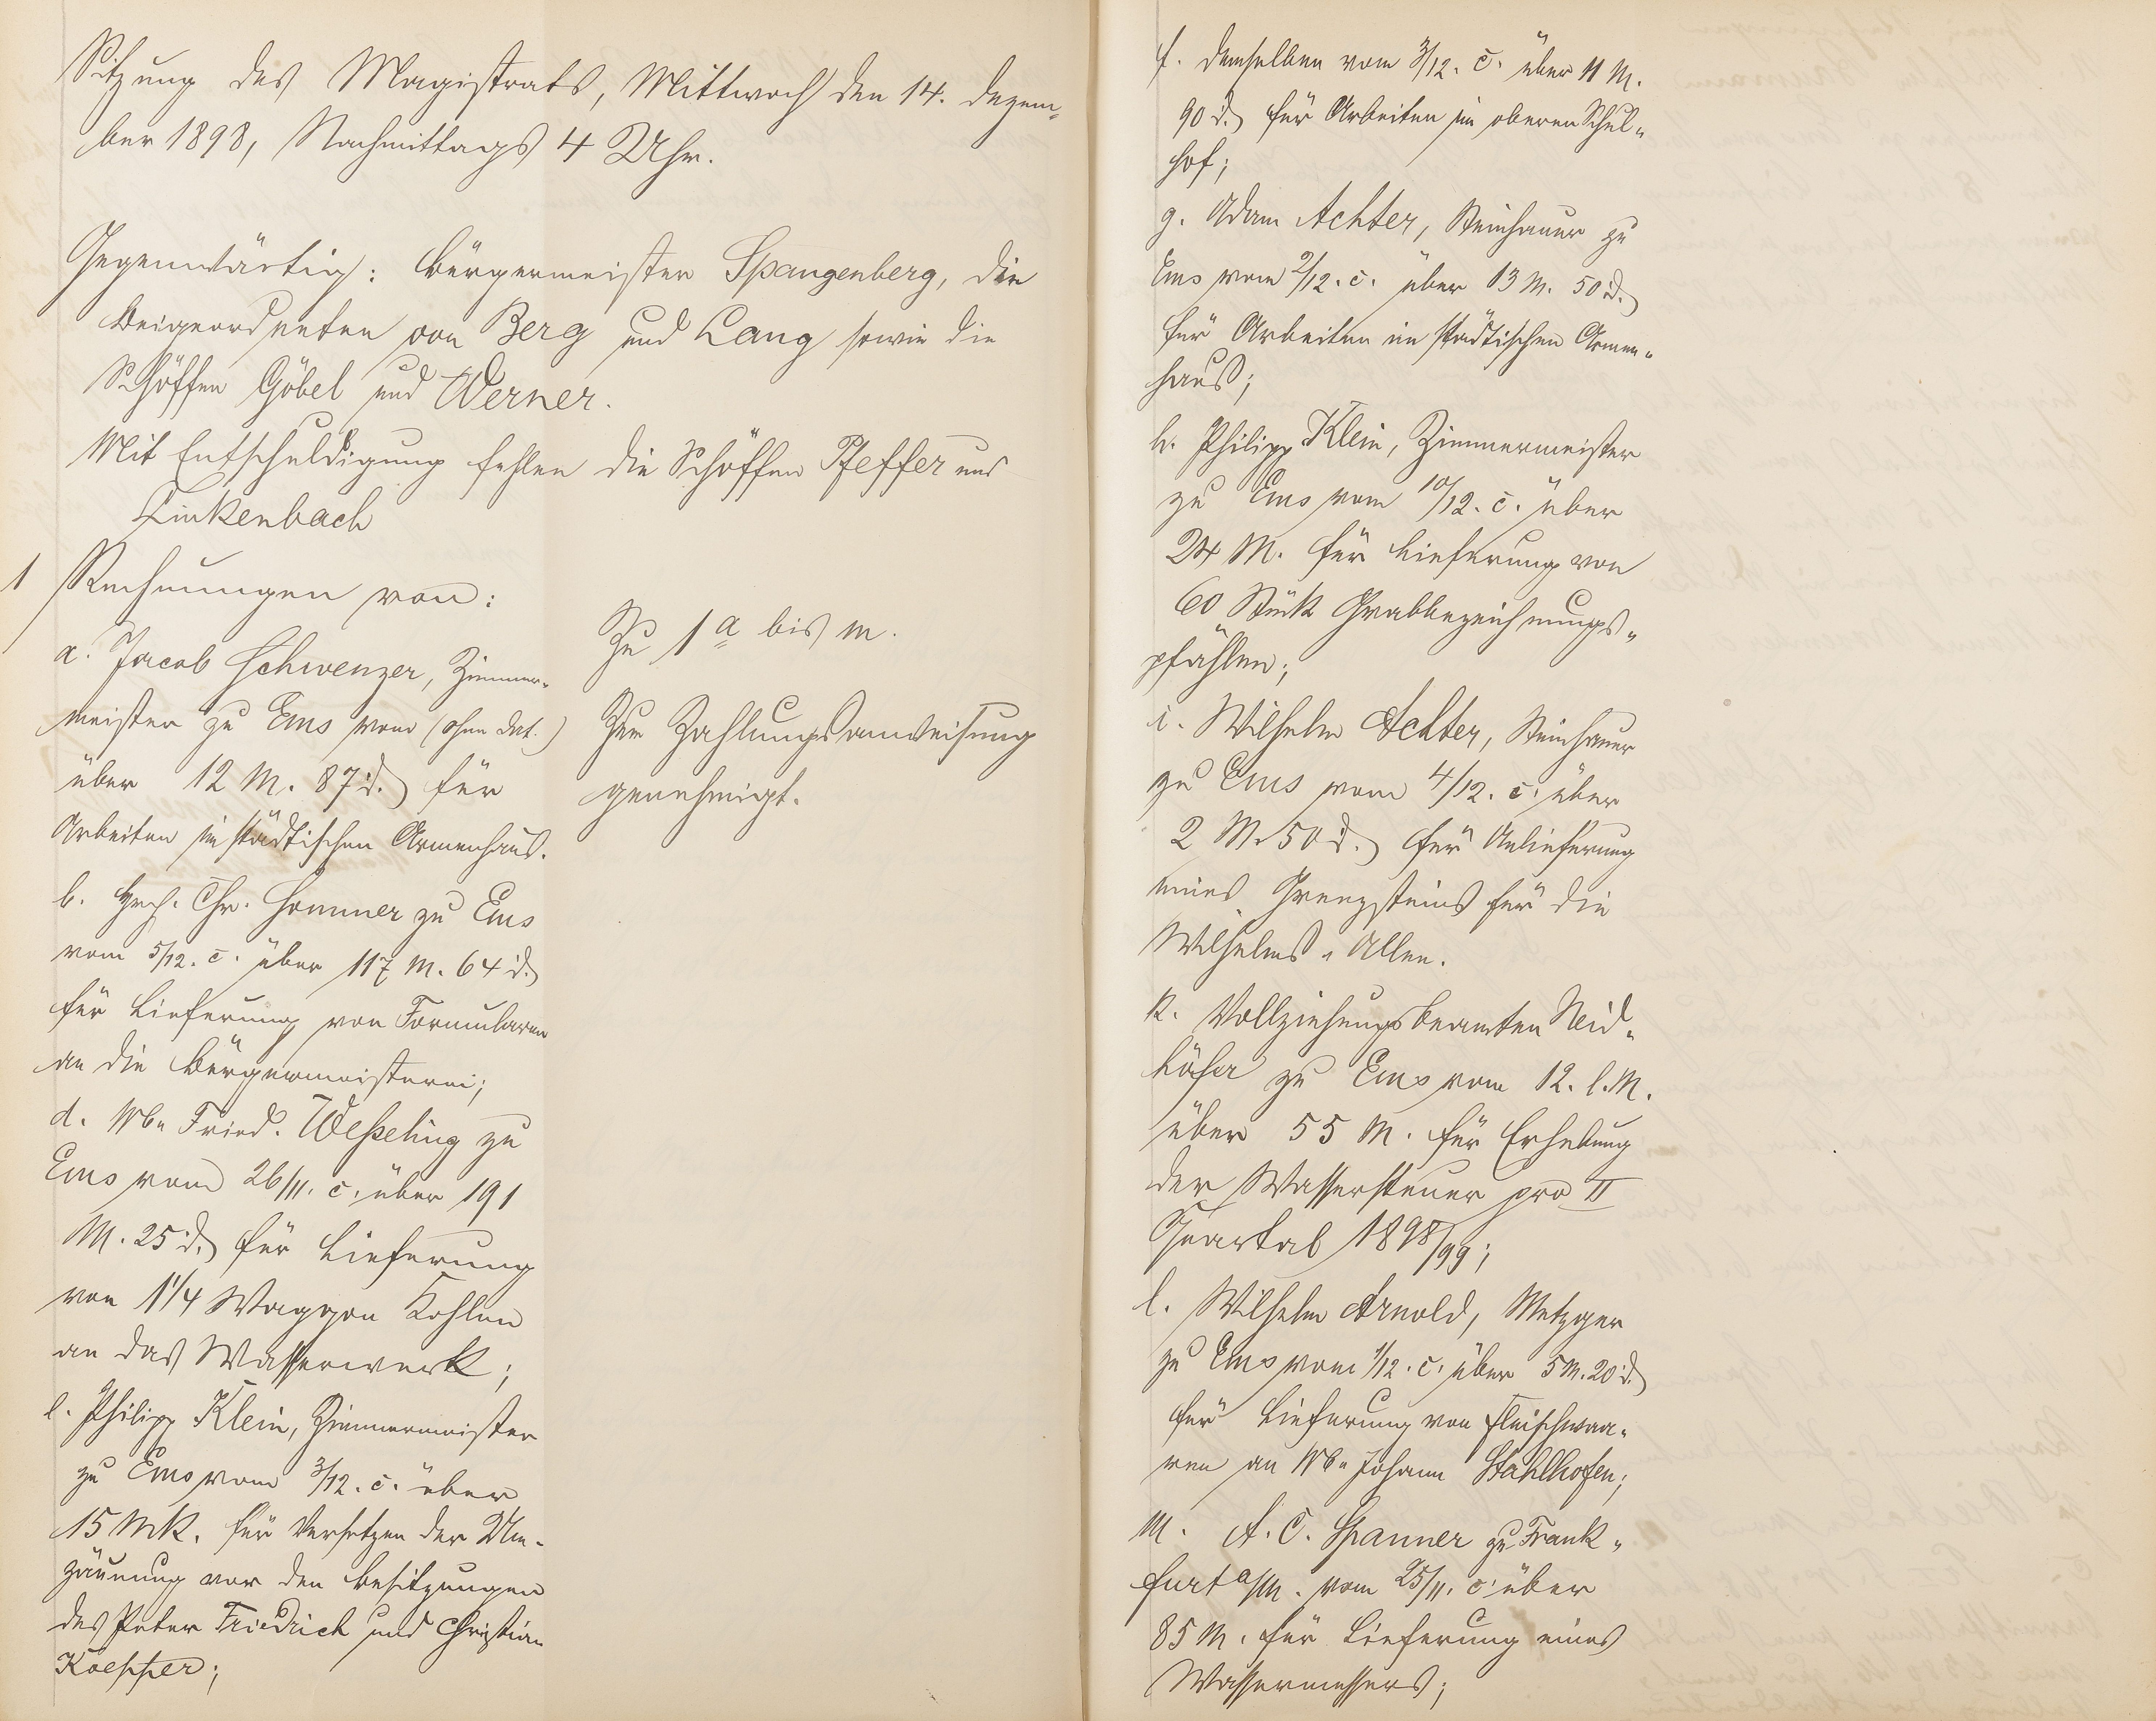 Sitzung des Magistrats, Mittwoch den 14. Dezem-
ber 1898, Nachmittags 4 Uhr.
Gegenwärtig: Bürgermeister Spangenberg, die
Beigeordneten von Berg und Lang sowie die
Schöffen Göbel und Werner.
Mit Entschuldigung fehlen die Schöffen Pfeffer und
Linkenbach
1 Rechnungen von:
a. Jacob Schwenzer, Zimmer-
meister zu Ems vom (ohne Dat.)
über 12 M. 87 d. für
Arbeiten im städtischen Armenhaus.
b. Hch. Chr. Sommer zu Ems
vom 5/12. c. über 117 M. 64 d.
für Lieferung von Formularen
an die Bürgermeisterei;
d. Wb. Fried. Weßeling zu
Ems vom 26/11. c. über 191
M. 25 d. für Lieferung
von 1 1/4 Waggon Kohlen
an das Wasserwerk;
e. Philipp Klein, Zimmermeister
zu Ems vom 3/12. c. über
15 Mk. für Versetzen der Um-
zäunung vor den Besitzungen
des Peter Friedrich und Christian
Koepper;
Zu 1 a bis m.
Zur Zahlungsanweisung
genehmigt.
f. demselben vom 3/12. c. über 11 M.
90 d. für Arbeiten im oberen Schul-
hof;
g. Adam Achter, Steinhauer zu
Ems vom 2/12. c. über 13 M. 50 d.
für Arbeiten im städtischen Armen-
haus;
h. Philipp Klein, Zimmermeister
zu Ems vom 10/12. c. über
24 M. für Lieferung von
60 Stück Grabbezeichnungs-
pfählen;
i. Wilhelm Achter, Steinhauer
zu Ems vom 4/12. c. über
2 M. 50 d. für Anlieferung
eines Grenzsteins für die
Wilhelms-Allee.
k. Vollziehungsbeamten Neid-
höfer zu Ems vom 12. l. M.
über 55 M. für Erhebung
der Wassersteuer pro II
Quartal 1898/99;
l. Wilhelm Arnold, Metzger
zu Ems vom 1/12. c. über 5 M. 20 d.
für Lieferung von Fleischwaa-
ren an Wb. Johann Stahlhofen;
m. A. C. Spanner zu Frank-
furt a/M. vom 25/11. c. über
85 M. für Lieferung eines
Wassermessers;